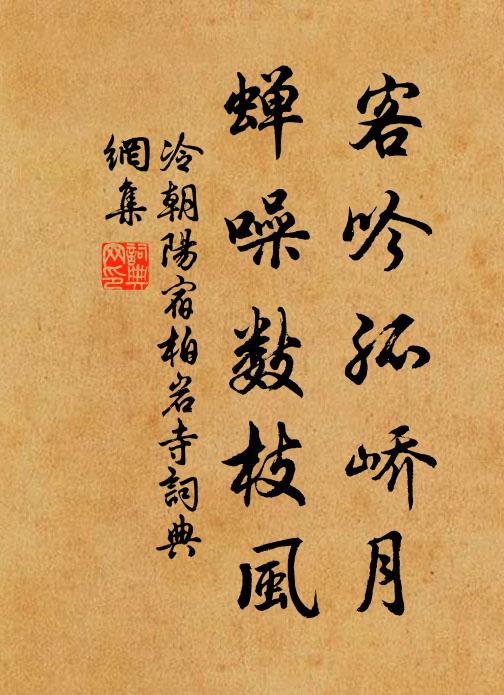 客吟孤峤月
蝉噪数枝风
冷朝陽宿柏岩寺詞典
網集
詞典
网印